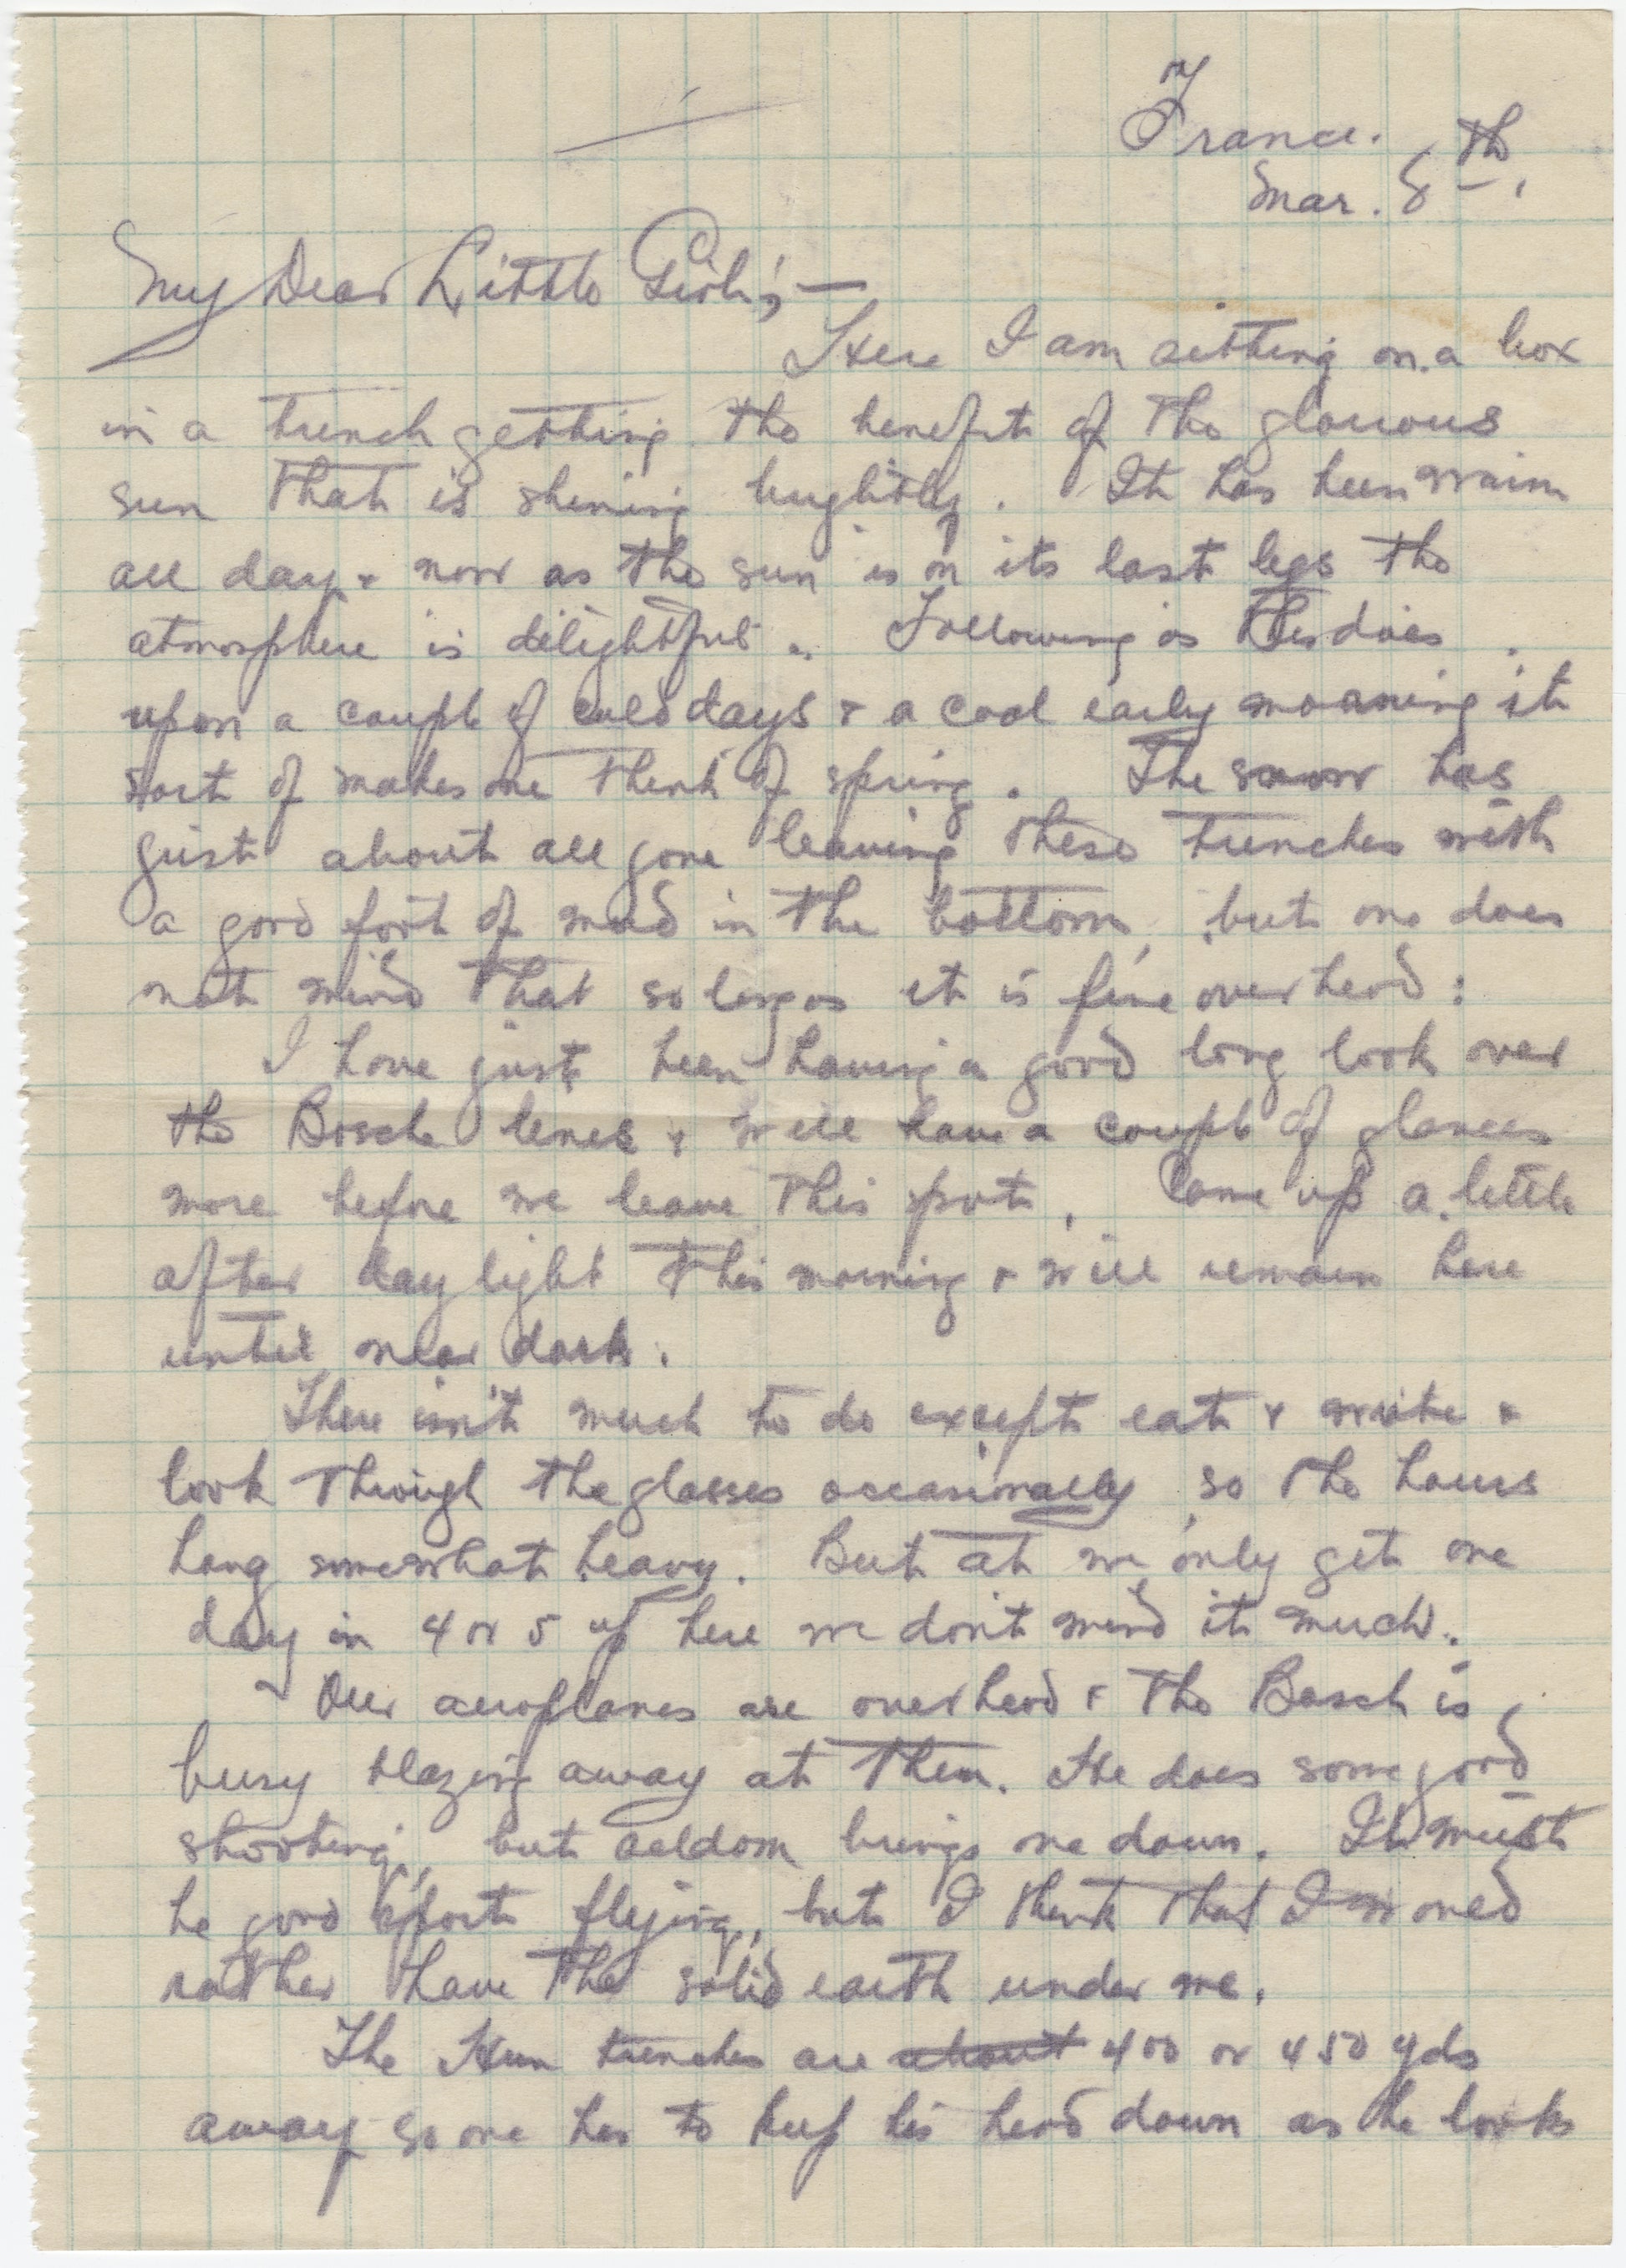 France.
Mar. 8th,
My Dear Little Girl;—
Here I am sitting on a box
in a trench getting the benefit of the glorious
sun that is shining brightly. It has been warm
all day & now as the sun is on its last legs the
atmosphere is delightful. Following as this does
upon a couple of cold days & a cool early morning it
sort of makes one think of spring. The snow has
just about all gone leaving these trenches with
a good foot of mud in the bottom, but one does
not mind that so long as it is fine overhead:
I have just been having a good long look over
the Bosche lines & will have a couple of glances
more before we leave this spot. Came up a little
after daylight this morning & will remain here
until near dark.
There isn't much to do except eat & write &
look through the glasses occasionally, so the hours
hang somewhat heavy. But at we only get one
day in 4 or 5 up here we don't mind it much.
Our aeroplanes are overhead & the Bosch is
busy blazing away at them. He does some good
shooting, but seldom brings one down. It must
be good sport flying, but I think that I would
rather have the solid earth under me.
The Hun trenches are about 400 or 450 yds
away so one has to keep his head down as he looks